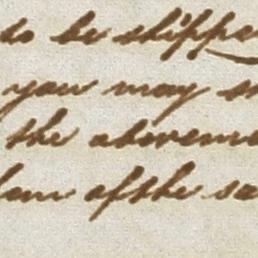 to be shippe
you may s
the abovem
of the sa